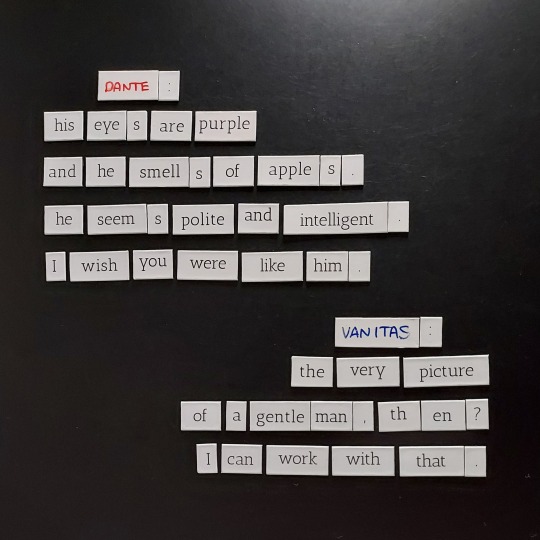 DANTE :
his eyes are purple
and he smells of apples.
he seems polite and intelligent.
I wish you were like him.
VANITAS :
the very picture
of a gentleman, then?
I can work with that.